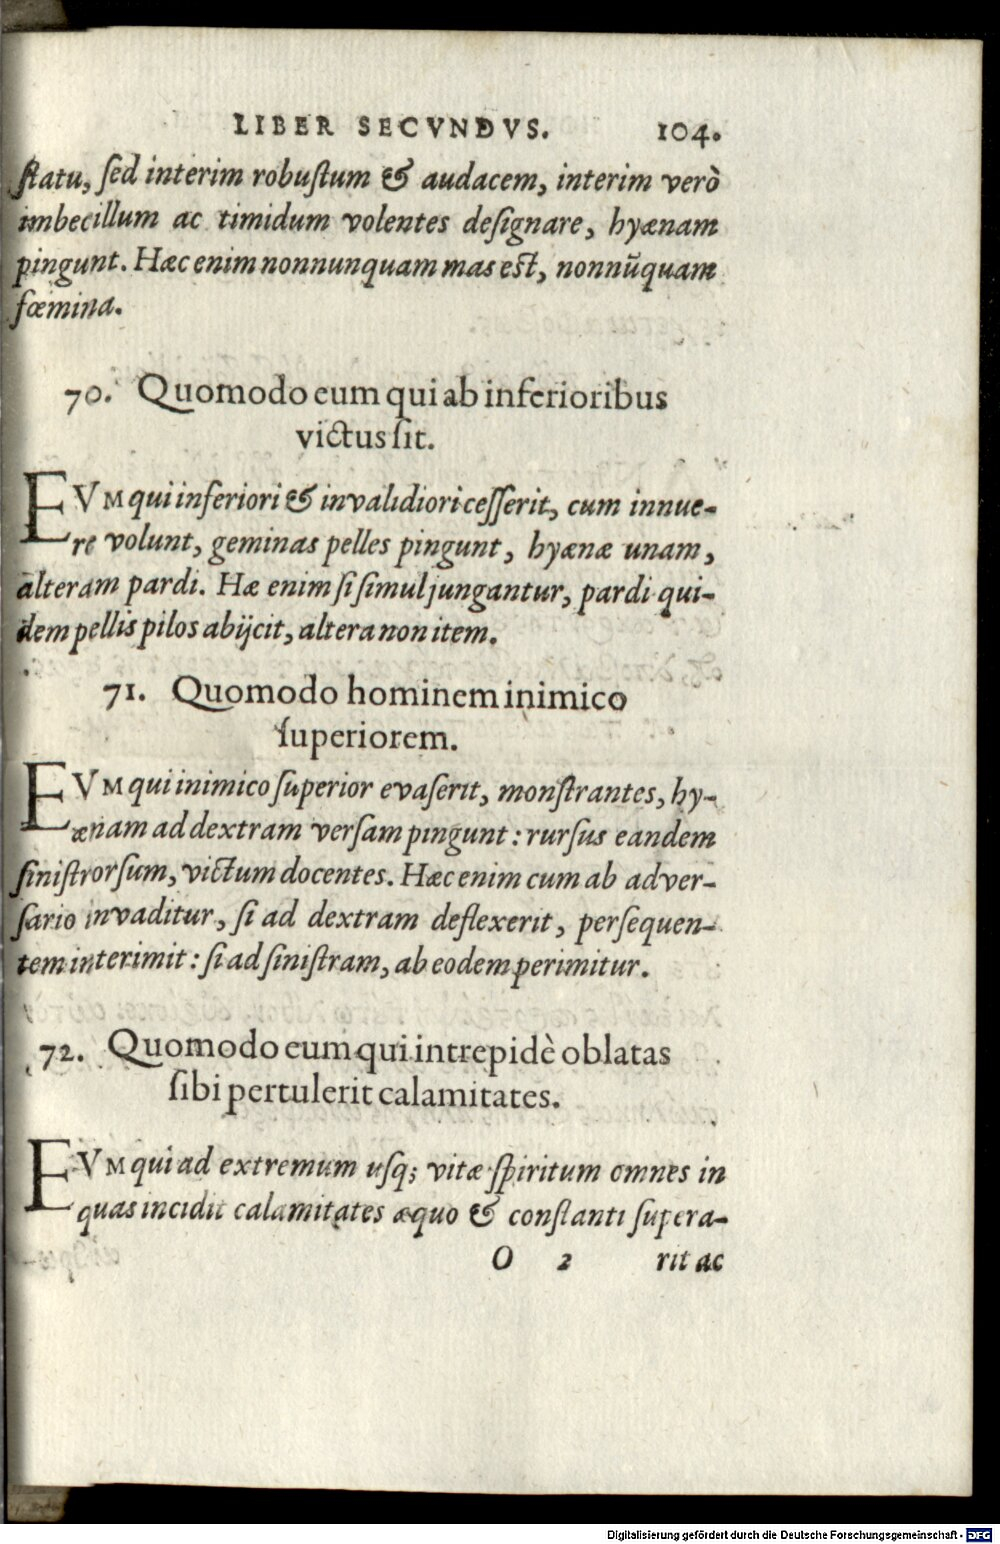 LIBER SECVNDVS. 104.
ſtatu, ſed interim robuſtum & audacem, interim verò
imbecillum ac timidum volentes deſignare, hyænam
pingunt. Hæc enim nonnunquam mas eſt, nonnūquam
fœmina.
70. Quomodo eum qui ab inferioribus
victus ſit.
EVM qui inferiori & invalidiori ceſſerit, cum innue-
re volunt, geminas pelles pingunt, hyænæ unam,
alteram pardi. Hæ enim ſi ſimul jungantur, pardi qui-
dem pellis pilos abijcit, altera non item.
71. Quomodo hominem inimico
ſuperiorem.
EVM qui inimico ſuperior evaſerit, monſtrantes, hy-
ænam ad dextram verſam pingunt: rurſus eandem
ſiniſtrorſum, victum docentes. Hæc enim cum ab adver-
ſario invaditur, ſi ad dextram deflexerit, perſequen-
tem interimit: ſi ad ſiniſtram, ab eodem perimitur.
72. Quomodo eum qui intrepidè oblatas
ſibi pertulerit calamitates.
EVM qui ad extremum uſq; vitæ ſpiritum omnes in
quas incidit calamitates æquo & conſtanti ſupera-
O 2 rit ac
Digitalisierung gefördert durch die Deutsche Forschungsgemeinschaft - DFG